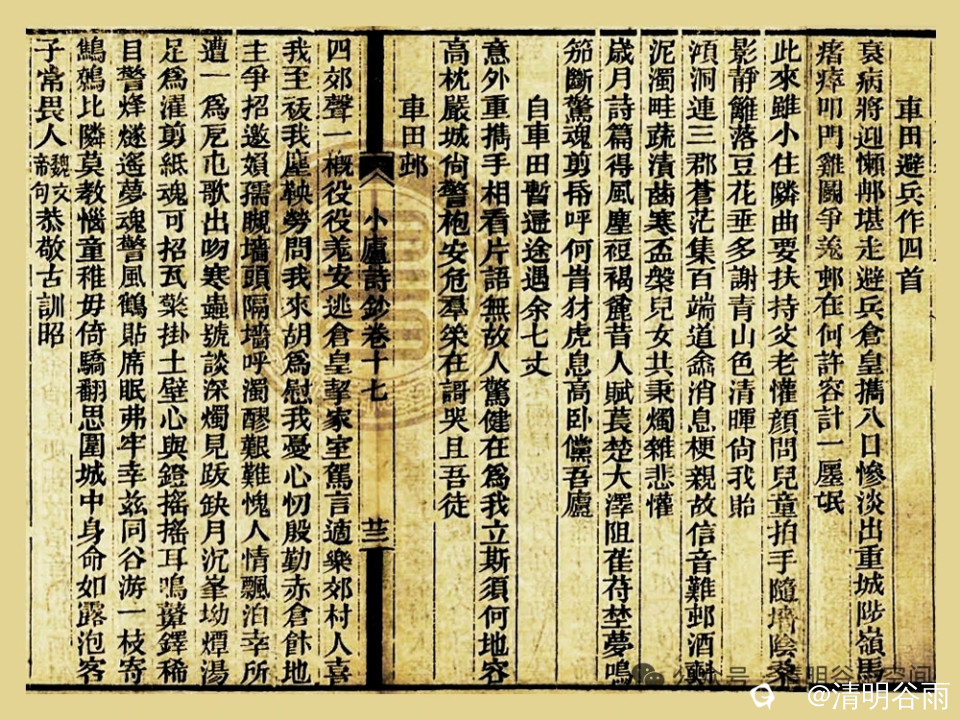 車田避兵作四首
衰病將迎懶邨堪走避兵倉皇攜八口慘淡出重城陟嶺馬
瘏痡叩門雞鬭爭羗邨在何許容計一廛氓
此來雖小住隣曲要扶持父老懽顏問兒童拍手隨墻陰桑
影靜籬落豆花垂多謝青山色清暉尙我貽
澒洞連三郡蒼茫集百端道消息梗親故信音難邨酒㪺
泥濁畦蔬漬齒寒盃槃兒女共秉燭雜悲懽
歲月詩篇得風塵裋褐麄昔人賦萇楚大澤阻萑苻埜夢鳴
笳斷驚魂剪帋呼何旹豺虎息高卧儻吾廬
自車田暫還途遇余七丈
意外重擕手相看片語無故人驚健在爲我立斯須何地容
高枕嚴城尙警枹安危羣筞在謌哭且吾徒
車田邨
小廬詩鈔卷十七 廿三
四郊聲一槪役役羗安逃倉皇挈家室駕言適樂郊村人喜
我至祓我塵鞅勞問我來胡爲慰我憂心忉殷勤赤倉飿地
主爭招邀嬾孺覵墻頭隔墻呼濁醪艱難愧人情飄泊幸所
遭一爲尫屯歌出吻寒蟲號談深燭見跋缺月沉峯坳燂湯
足爲濯剪紙魂可招瓦檠掛土壁心與鐙搖搖耳鳴鼙鐸稀
目警烽燧遙夢魂警風鶴貼席眠弗牢幸茲同谷游一枝寄
鷦鷯比隣莫教惱童稚毋倚驕翻思圍城中身命如露泡客
子常畏人魏文帝句恭敬古訓昭
公众号·清明谷雨空间
@清明谷雨